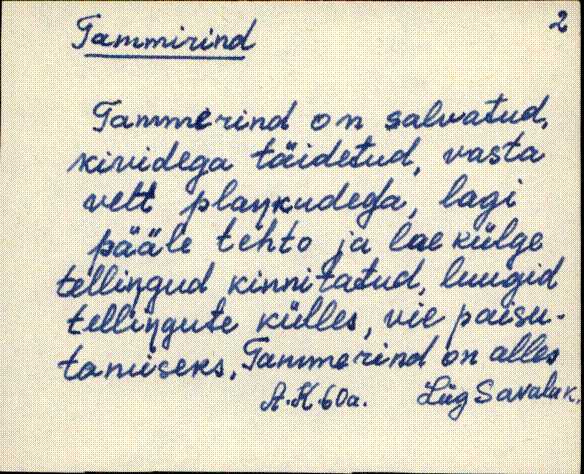 2
Tammirind
Tammerind on salvatud,
kividega täidetud, vasta
vett plaŋkudega, lagi
pääle tehto ja lae külge
telliŋgud kinnitatud, luugid
telliŋgute külles, vie paisu-
tamiseks. Tammerind on alles
A.K. 60a. Lüg Savala k.